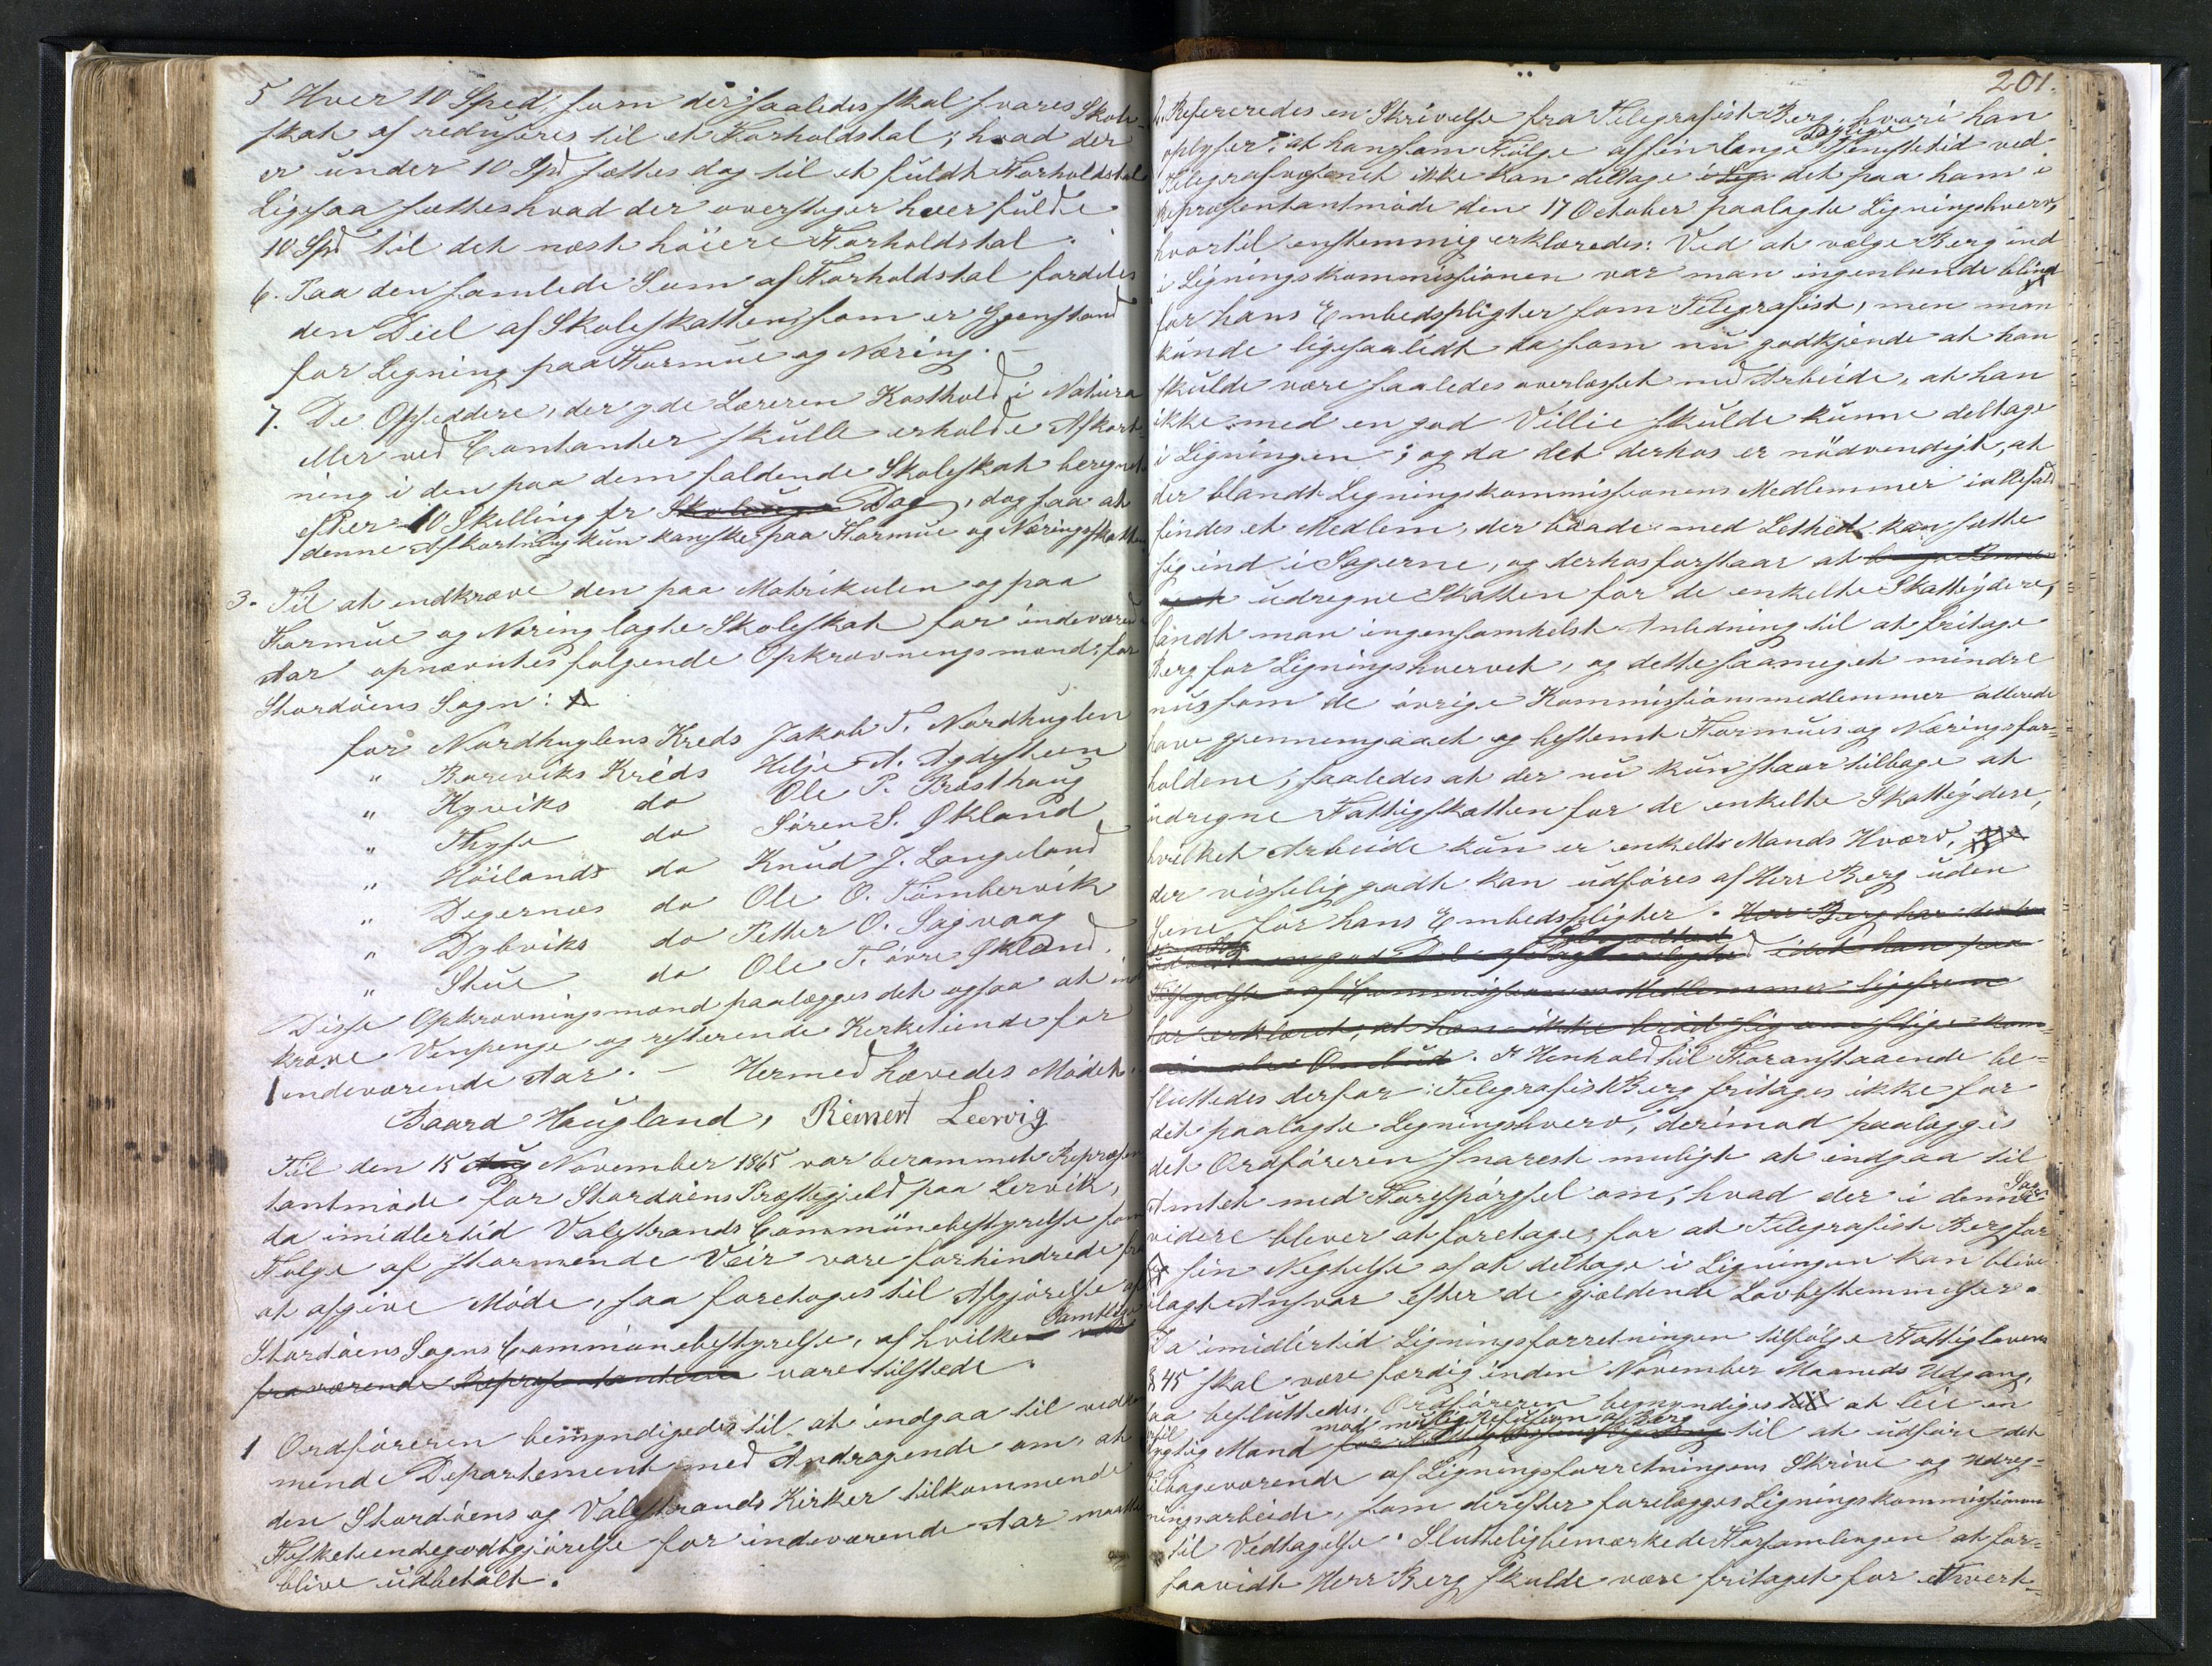 5 Hver 10 Sped, som der saaledes skal svares Skole-
skat af reduseres til et Forholdstal; hvad der
er under 10 Spd sættes dog til et fuldt Forholdstal
Ligesaa sættes hvad der overstiger hver fulde
10 Spd til det næst höiere Forholdstal.
6. Paa den samlede Sum af Forholdstal fordeles
den Deel af Skoleskatten som er Gjenstand
for Ligning paa Formue og Næring. –
7. De Opsiddere, der yde Læreren Kosthold i Natura
eller ved Contanter skulle erholde Afkort-
ning i den paa dem faldende Skoleskat beregnet
efter 10 Skilling pr Dag, dog saa at
denne Afkortning kun kan ske paa Formue og Næringsskatten.
3. Til at indkræve den paa Matrikulen og paa
Formue og Næring lagte Skoleskat for indeværende
Aar opnævntes følgende Opkrævningsmænd; for
Stordöens Sogn:
for Nordhuglens Kreds Jakob T. Nordhuglen
" Boreviks Kreds Helje A. Agdesteen
" Hyviks do Ole P. Prosthaug
" Thyse do Sören S. Økland
" Höilands do Knud J. Langeland
" Degernæs do Ole O. Tömbervik
" Dybviks do Petter O. Sagvaag
" Stue do Ole T. övre Økland.
Disse Opkrævningsmænd paalægges det ogsaa at ind
kræve Venpenge og resterende Kirketiende for
indeværende Aar. – Hermed hævedes Mödet.
Baard Haugland, Reinert Leervig
Til den 15 Aug November 1865 var berammet Repræsen
tantmöde for Stordöens Præstegjeld paa Lervik,
da imidlertid Valestrands Communebestyrelse som
Følge af stormende Veir vare forhindrede fra
at afgive Möde, saa foretoges til Afgjörelse af
Stordöens Sogns Communebestyrelse, af hvilken Samtlige
fraværende Repræsentanterne vare tilstede.
1 Ordföreren bemyndigedes til at indgaa til vedkom
mende Departement med Andragende om, at
den Stordöens og Valestrands Kirker tilkommende
Fisketiendegodtgjörelse for indeværende Aar maatte
blive udbetalt.
201.
2. Refereredes en Skrivelse fra Telegrafist Berg, hvori han
oplyser: at han som Følge af sin lange Daglige Tjenestetid ved
Telegrafvæsenet ikke kan deltage i det paa ham i
Repræsentantmöde den 17 October paalagte Ligningshverv,
hvortil enstemmig erklæredes: Ved at vælge Berg ind
i Ligningskommissionen var man ingenlunde blind
for hans Embedspligter som Telegrafist, men man
kunde ligesaalidt da som nu godkjende at han
skulde være saaledes overlæsset med Arbeide, at han
ikke med en god Villie skulde kunne deltage
i Ligningen; og da det derhos er nödvendigt, at
der blandt Ligningskommissionens Medlemmer iallefald
findes et Medlem, der baade med Lethed kan sætte
sig ind i Sagerne, og derhos forstaar at
udregne Skatten for de enkelte Skatteydere,
fandt man ingensomhelst Anledning til at fritage
Berg for Ligningshvervet, og dette saameget mindre
nu som de övrige Kommissionsmedlemmer allerede
have gjennemgaaet og bestemt Formues og Næringsfor-
holdene; saaledes at der nu kun staar tilbage at
udregne Fattigskatten for de enkelte Skatteydere,
hvilket Arbeide kun er enkelt Mands Hværv,
der visselig godt kan udföres af Herr Berg uden
Gene for hans Embedspligter. Herr Berg har
idet han paa
af Commissionens Medlemmer ligefrem
har erklæret, at han ikke bröd sig om slige kom-
I Henhold til Foranstaaende be-
sluttedes derfor: Telegrafist Berg fritages ikke for
det paalagte Ligningshverv, derimod paalægges
det Ordföreren snarest muligt at indgaa til
Amtet med Forespörgsel om, hvad der i denne Sag
videre bliver at foretage, for at Telegrafist Berg for
sin Negtelse af at deltage i Ligningen kan blive
ilagt Ansvar efter de gjældende Lovbestemmelser.
Da imidlertid Ligningsforretningen tilfølge Fattiglovens
§ 45 skal være færdig inden November Maaneds Udgang,
saa besluttedes: Ordföreren bemyndiges at leie en
mod mulig Refusion af Berg
dygtig Mand til at udföre det
tilbageværende af Ligningsforretningens Skrive og Udreg-
ningsarbeide, som derefter forelægges Ligningskommissionen
til Vedtagelse. Slutteligbemærkede Forsamlingen at for-
saavidt Herr Berg skulde være fritaget for ethvert-